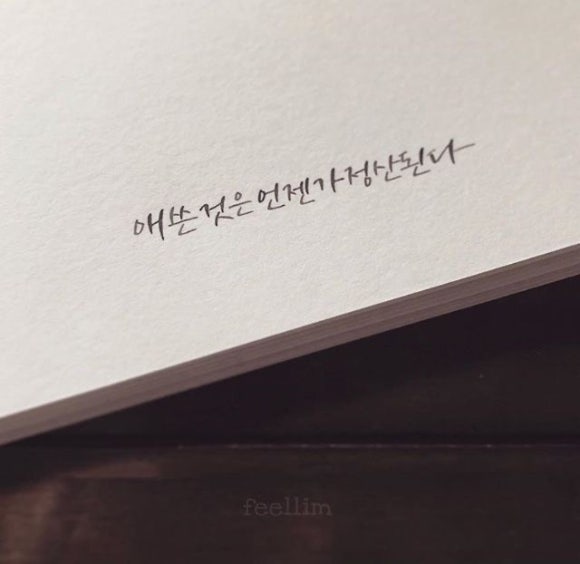 애쓴것은언젠가정산된다
feellim